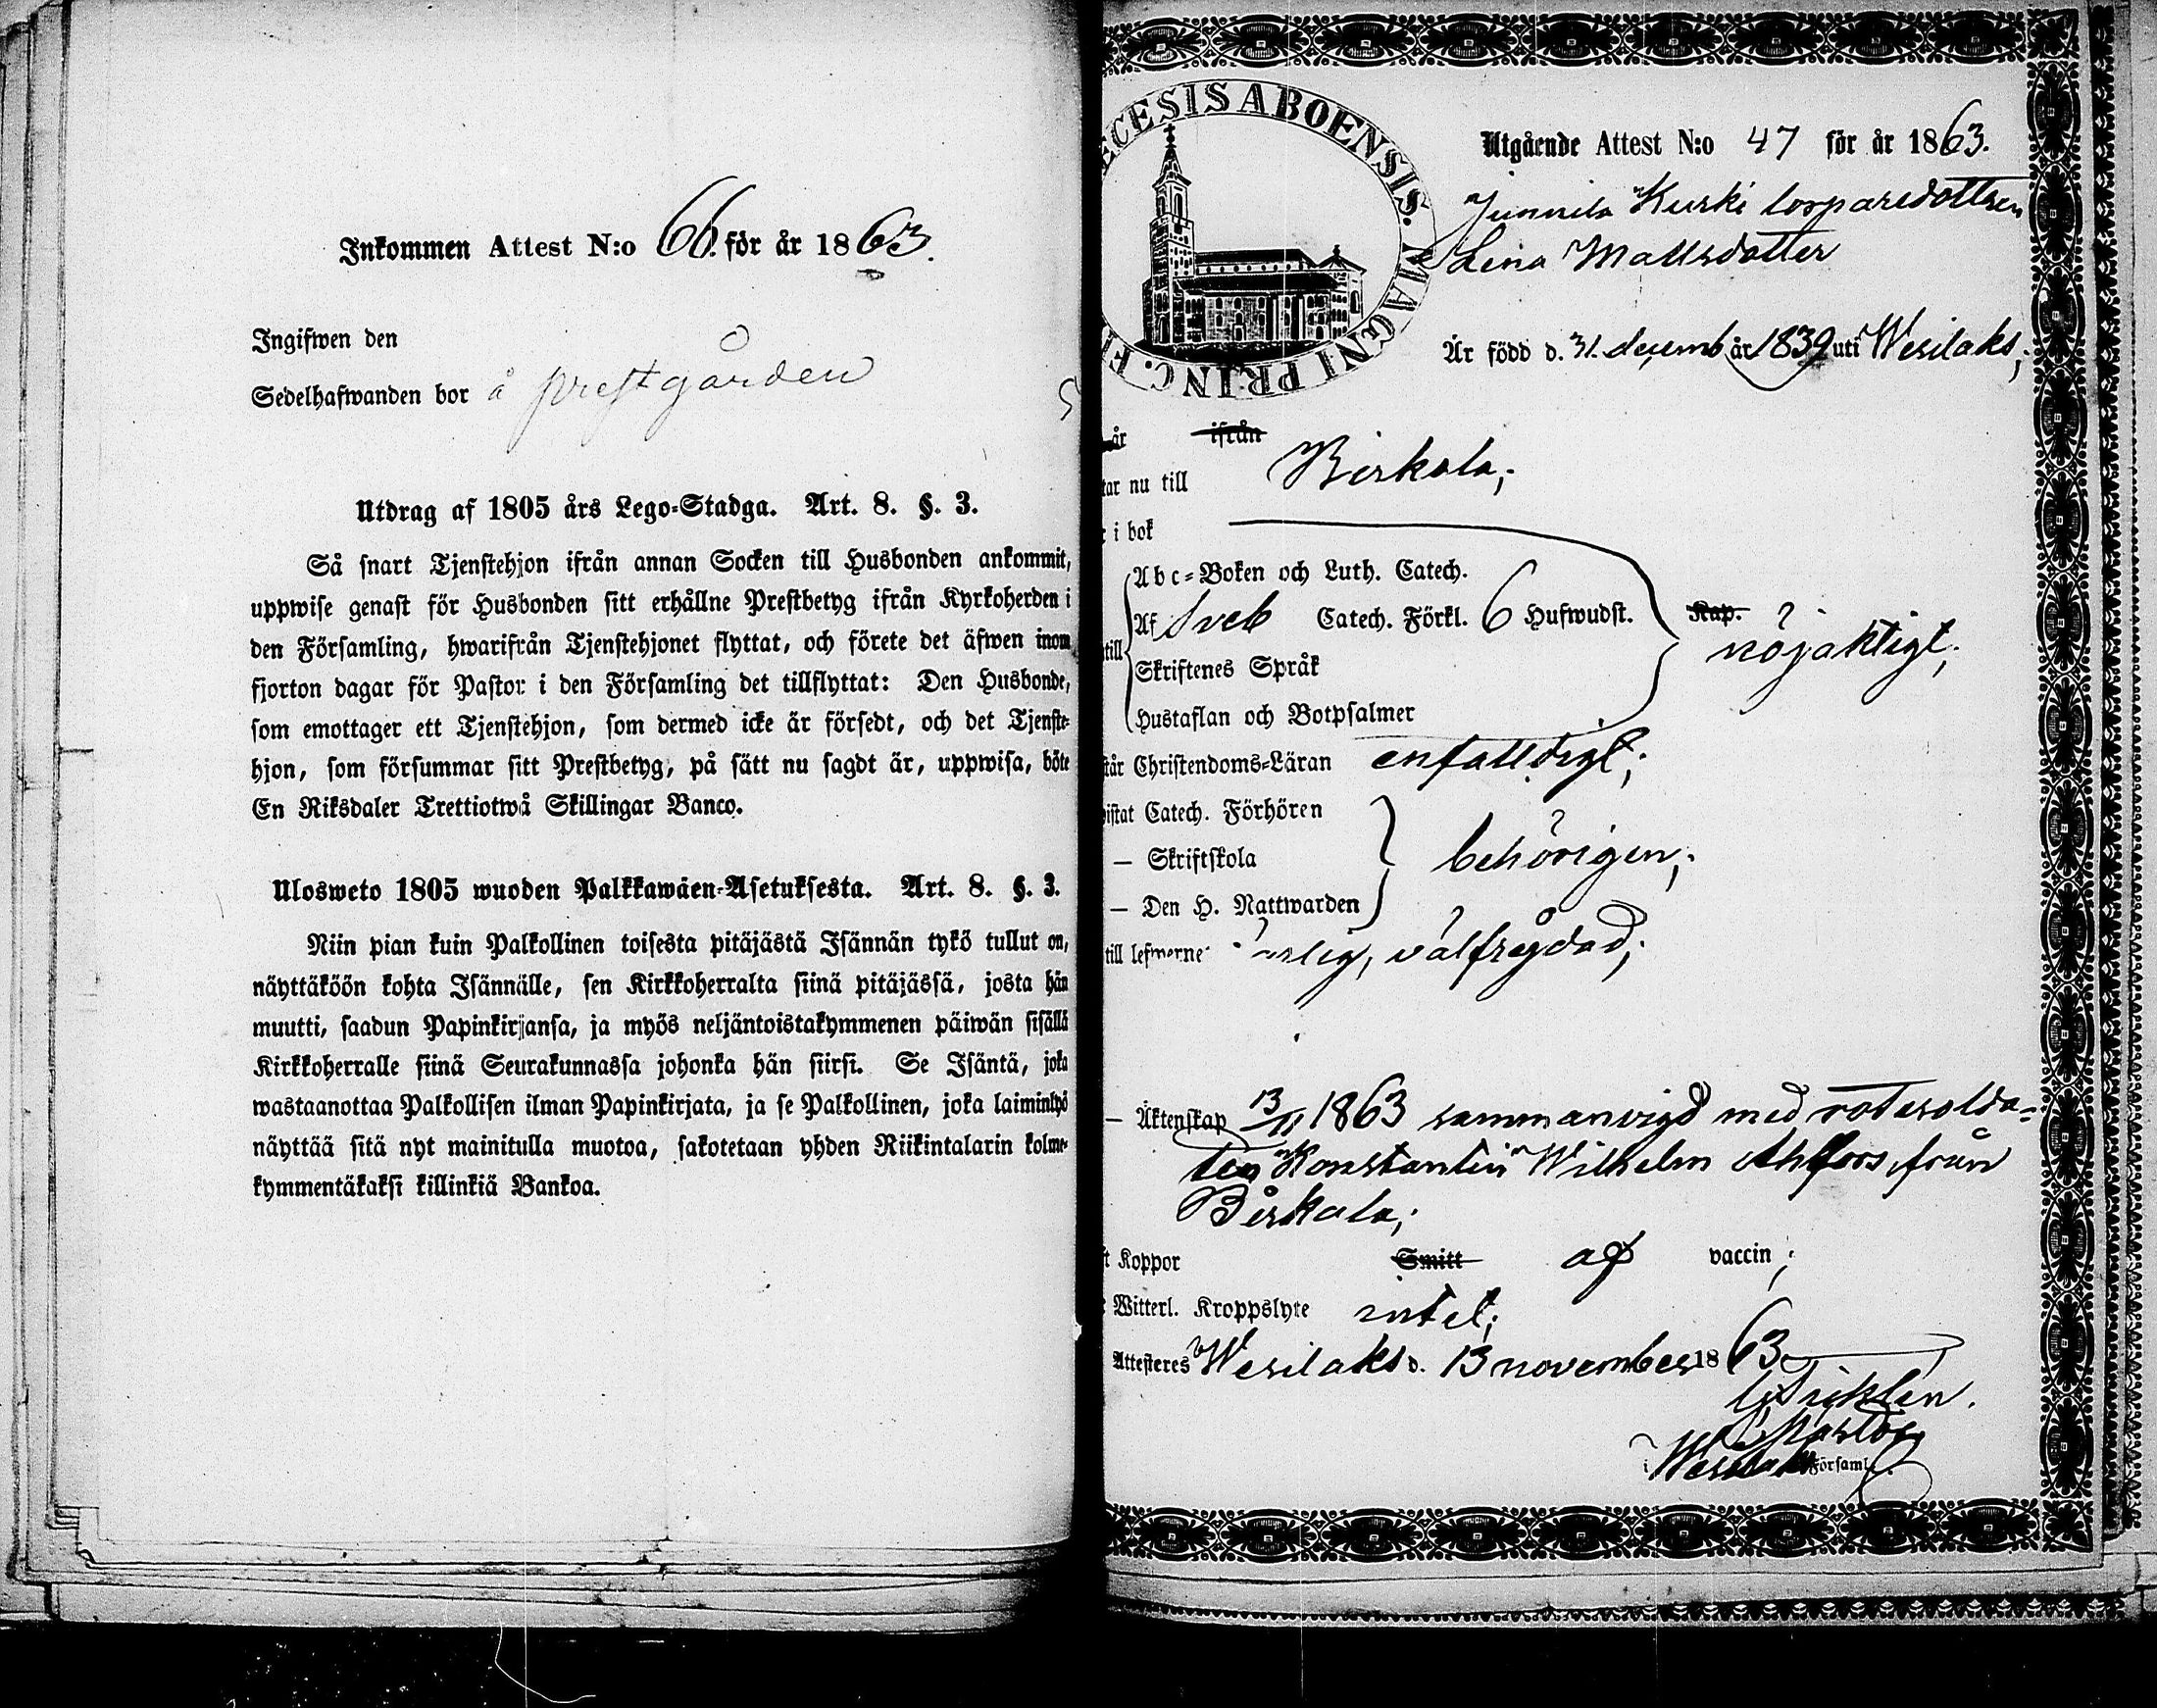 Inkommen Attest N:o 66. för år 1863.
Ingifwen den
Sedelhafwanden bor å prestgården
Utdrag af 1805 års Lego-Stadga. Art. 8. §. 3.
Så snart Tjenstehjon ifrån annan Socken till Husbonden ankommit,
uppwise genast för Husbonden sitt erhållne Prestbetyg ifrån Kyrkoherden i
den Församling, hwarifrån Tjenstehjonet flyttat, och förete det äfwen inom
fjorton dagar för Pastor i den Församling det tillflyttat: Den Husbonde,
som emottager ett Tjenstehjon, som dermed icke är försedt, och det Tjenste-
hjon, som försummar sitt Prestbetyg, på sätt nu sagdt är, uppwisa, böte
En Riksdaler Trettiotwå Skillingar Banco.
Ulosweto 1805 wuoden Palkkawäen-Asetuksesta. Art. 8. §. 3.
Niin pian kuin Palkollinen toisesta pitäjästä Isännän tykö tullut on,
näyttäköön kohta Isännälle, sen Kirkkoherralta siinä pitäjässä, josta hän
muutti, saadun Papinkirjansa, ja myös neljäntoistakymmenen päiwän sisällä
Kirkkoherralle siinä Seurakunnassa johonka hän siirsi. Se Isäntä, joka
wastaanottaa Palkollisen ilman Papinkirjata, ja se Palkollinen, joka laiminlyö
näyttää sitä nyt mainitulla muotoa, sakotetaan yhden Riikintalarin kolme-
kymmentäkaksi killinkiä Bankoa.
ECESIS ABOENSIS. MAGNI PRINC. FI
Utgående Attest N:o 47 för år 1863.
Junnila Kurki torparedottren
Lina Mattsdotter
Är född d. 31. decemb år 1839 uti Wesilaks;
år ifrån
tar nu till Birkala;
i bok
Abc-Boken och Luth. Catech.
Af Sveb Catech. Förkl. 6 Hufwudst. Kap. nöjaktigt;
till
Skriftenes Språk
Hustaflan och Botpsalmer
står Christendoms-Läran enfalldigt;
wistat Catech. Förhören
— Skriftskola behörigen;
— Den H. Nattwarden
till lefwerne ärlig, välfrejdad;
— Äktenskap 13/11 1863 sammanvigd med rotesolda-
ten Konstantin Wilhelm Ahlfors från
Birkala;
t Koppor Smitt af vaccin;
Witterl. Kroppslyte intet;
Attesteres Wesilaks d. 13 november 1863
Pastor
i Wesilaks Församl.